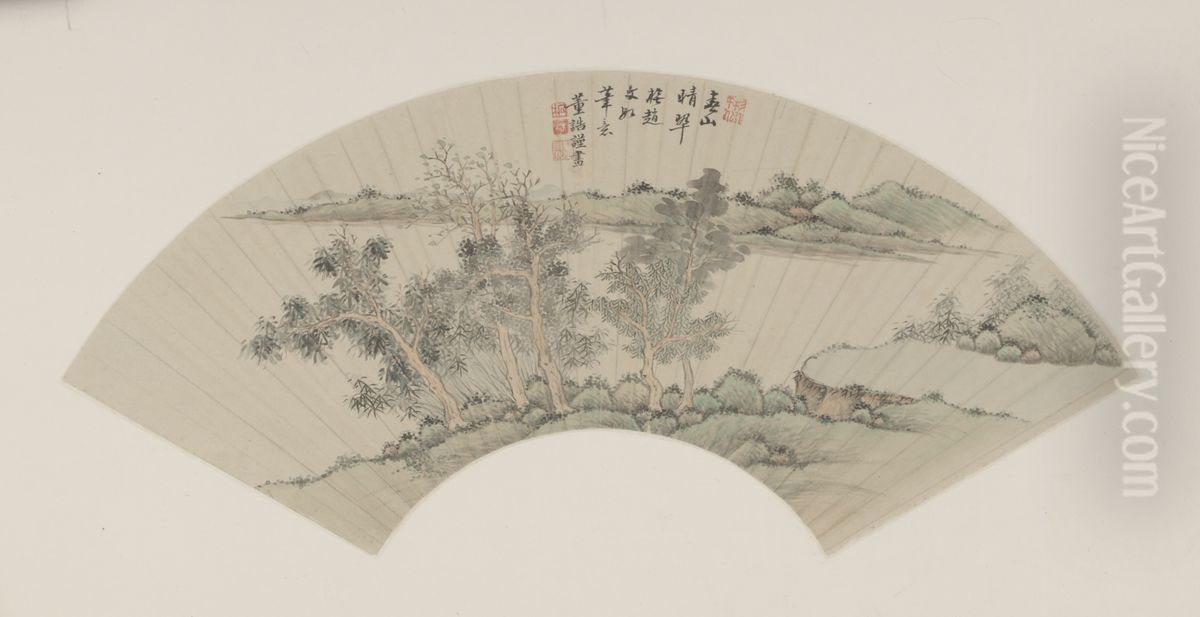 春山
晴翠
趙
文
筆意
董誥謹畫
NiceArtGallery.com